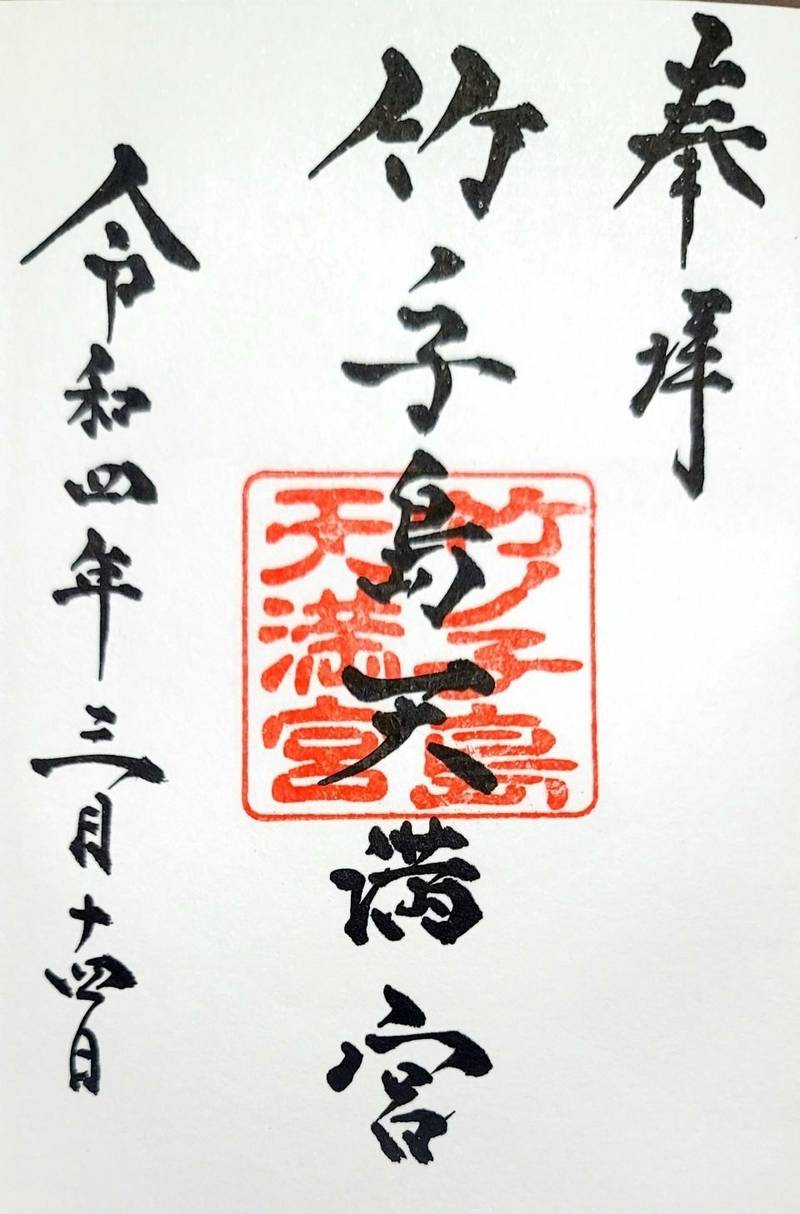 奉拝
竹子島天満宮
竹ノ子島
天満宮
令和四年三月十四日